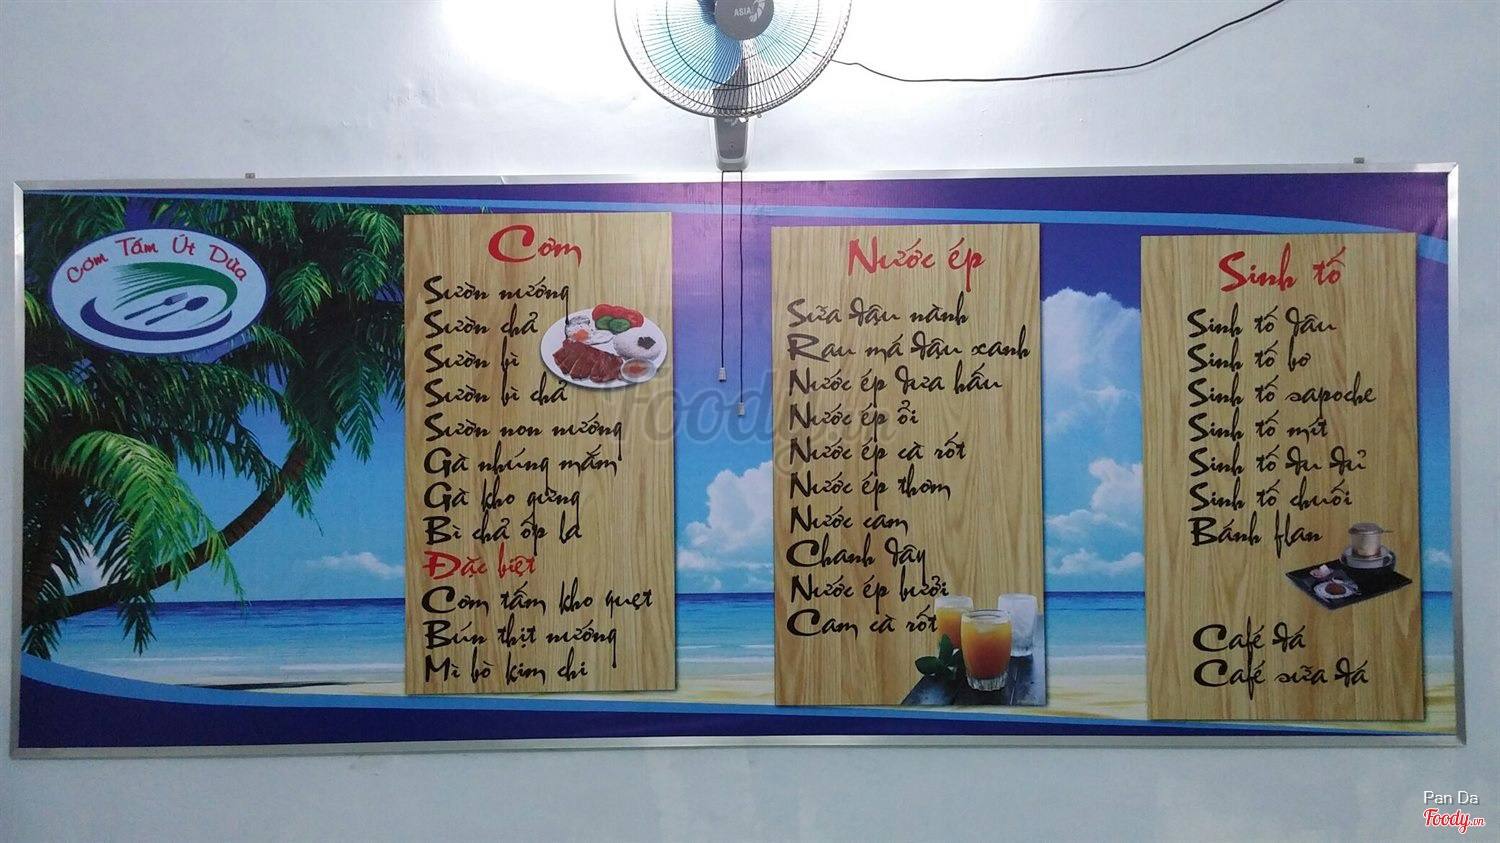 ASIA
Cơm Tấm Út Dừa
Cơm
Sườn nướng
Sườn chả
Sườn bì
Sườn bì chả
Sườn non nướng
Gà nhúng mắm
Gà kho gừng
Bì chả ốp la
Đặc biệt
Cơm tấm kho quẹt
Bún thịt nướng
Mì bò kim chi
Nước ép
Sữa đậu nành
Rau má đậu xanh
Nước ép dưa hấu
Nước ép ổi
Nước ép cà rốt
Nước ép thơm
Nước cam
Chanh dây
Nước ép bưởi
Cam cà rốt
Sinh tố
Sinh tố dâu
Sinh tố bơ
Sinh tố sapoche
Sinh tố mít
Sinh tố đu đủ
Sinh tố chuối
Bánh flan
Café đá
Café sữa đá
Foody.vn
Pan Da
Foody.vn